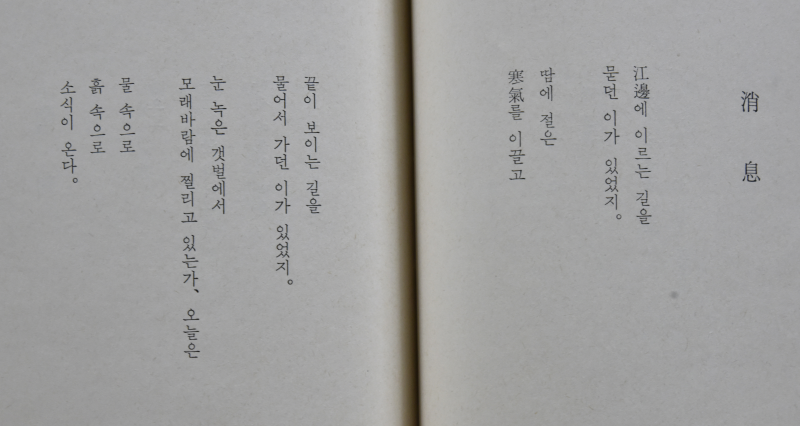 消息
江邊에 이르는 길을
묻던 이가 있었지.
땀에 절은
寒氣를 이끌고
끝이 보이는 길을
물어서 가던 이가 있었지.
눈 녹은 갯벌에서
모래바람에 찔리고 있는가, 오늘은
물 속으로
흙 속으로
소식이 온다.